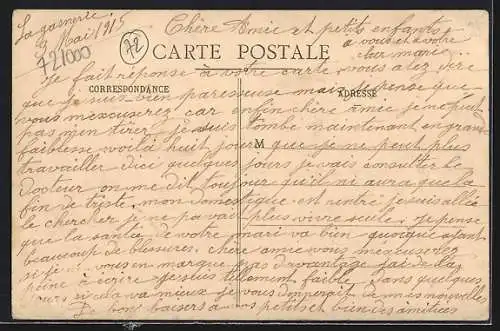 La gasnerie
9 Mai 1915
72000
72
Chère Amie et petits enfants
à vous et à votre
cher mari
CARTE POSTALE
Je fait réponse à votre carte vous alez dire
CORRESPONDANCE
ADRESSE
que je suis bien paresseuse mais je pense que
vous mexcuserez car enfin chère amie je ne peut
pas men tirer je suis tombé maintenant en grande
faiblesse voilà huit jours que je ne peut plus
M
travailler dici quelques jours je vais consulter le
docteur on me dit toujour qu'il ni aura que la
fin de triste mon domestique est rentré je suis allée
le chercher je ne pouvait plus vivre seule je pense
que la santé de votre mari va bien quoique ayant
beaucoup de blessures chère amie vous mexcuserez
si je vous en marque pas davantage jai de la
peine à écrire je suis tellement faible dans quelques
jours si cela va mieux je vous donnerait de mes nouvelles
Je bon baisers à vos petits et bien des amitiées